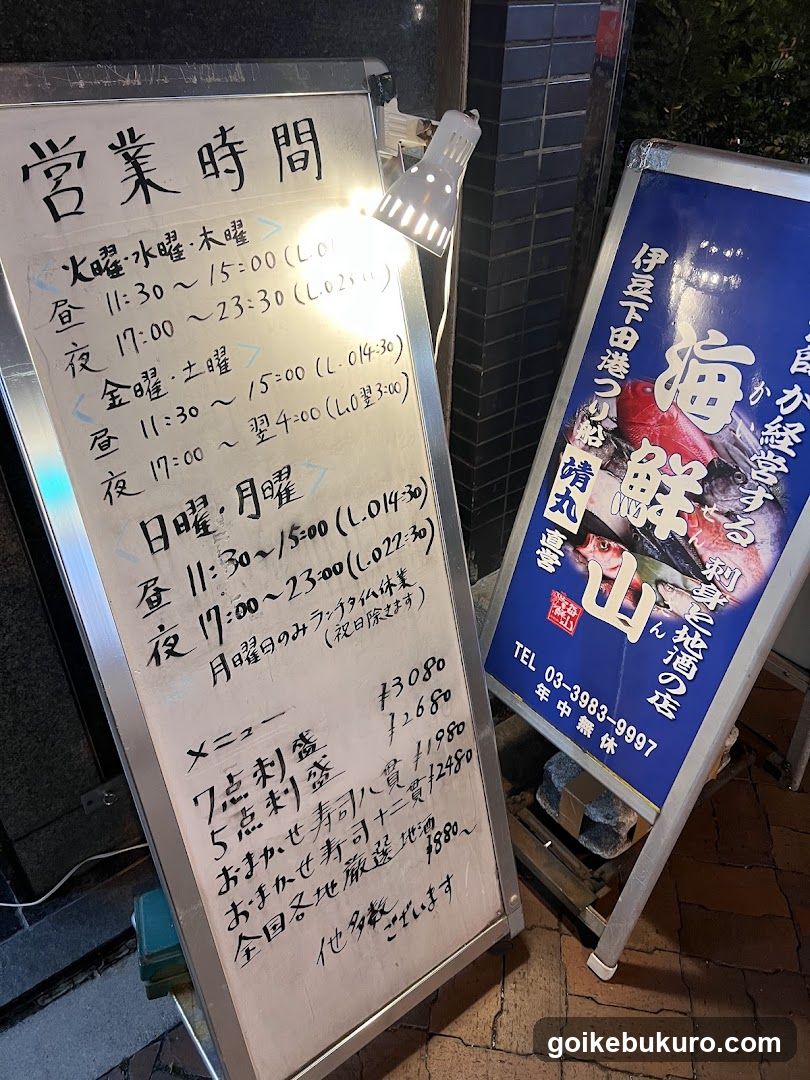 営業時間
火曜・水曜・木曜
昼 11:30～15:00(L.O
夜 17:00～23:30(L.O23:00)
金曜・土曜
昼 11:30～15:00(L.O14:30)
夜 17:00～翌4:00(L.O翌3:00)
日曜・月曜
昼 11:30～15:00(L.O14:30)
夜 17:00～23:00(L.O22:30)
月曜日のみランチタイム休業
(祝日除きます)
メニュー
7点刺盛 ¥3080
5点刺盛 ¥2680
おまかせ寿司八貫 ¥1980
おまかせ寿司十二貫 ¥2480
全国各地厳選地酒 ¥880～
他多数ございます
が経営する 刺身と地酒の店
海鮮山
かいせん
伊豆下田港つり船 靖丸 直営
TEL 03-3983-9997
年中無休
goikebukuro.com